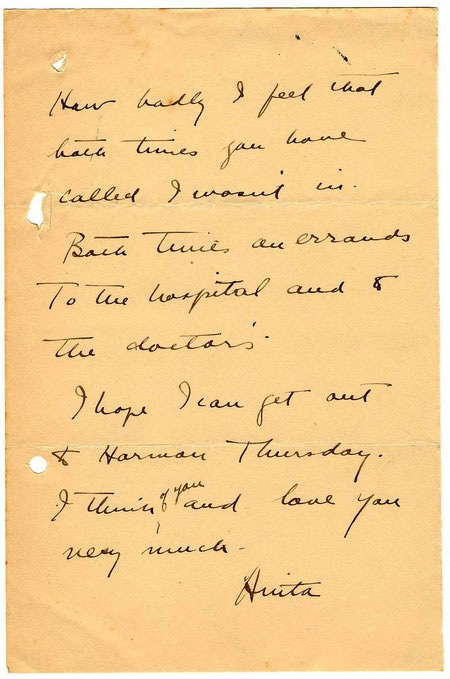 How badly I feel that
both times you have
called I wasn't in.
Both times on errands
To the hospital and to
the doctor's.
I hope I can get out
to Harmon Thursday.
I think of you and love you
very much -
Anita